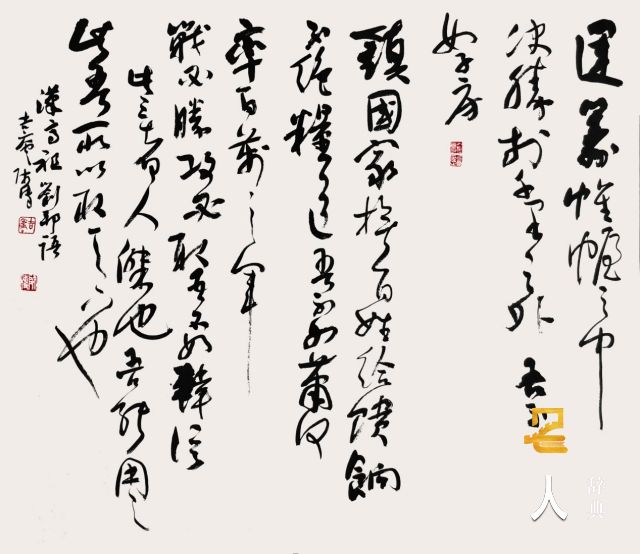 運籌帷幄之中
決勝於千里之外吾不
如子房
鎮國家撫百姓給饋餉
不絕糧道吾不如蕭何
率百萬之軍
戰必勝攻必取吾不如韓信
此三者皆人傑也吾能用之
此吾所以取天下也
漢高祖劉邦語
人
辞典